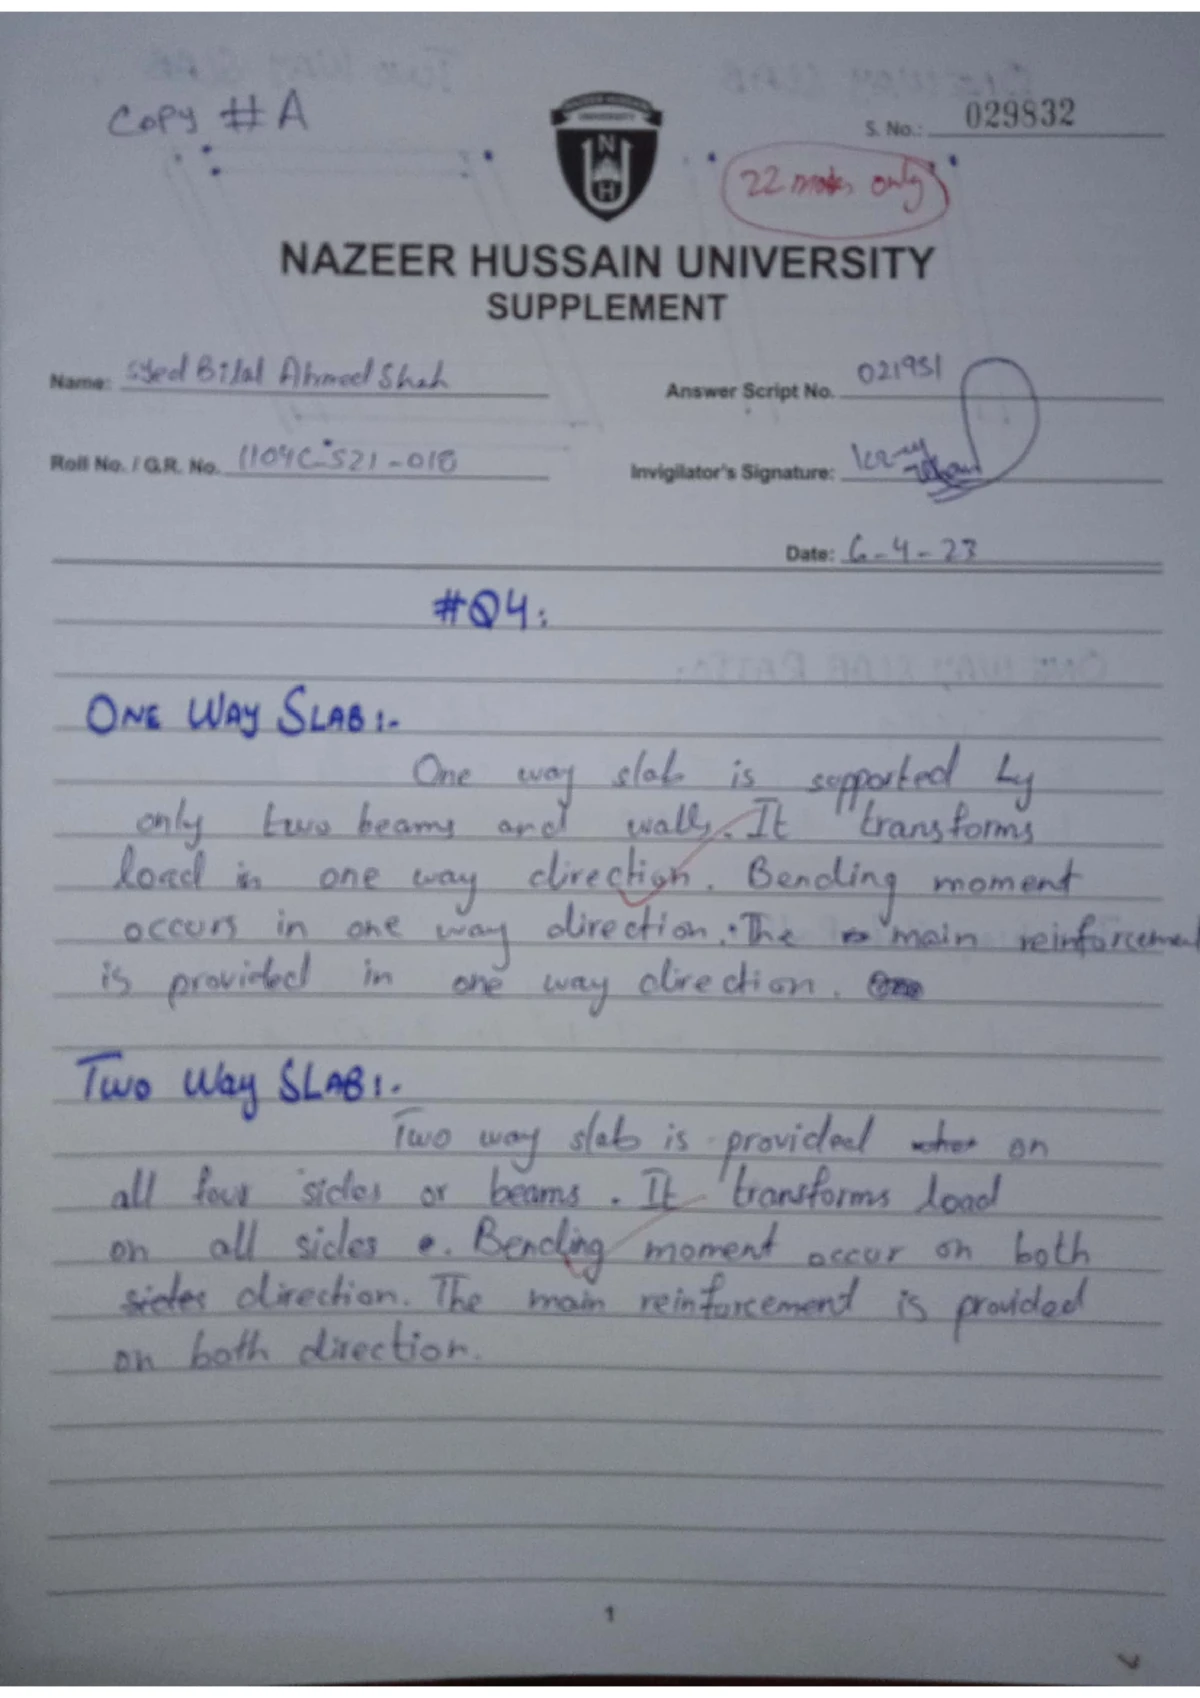 Copy #A
NAZEER HUSSAIN
UNIVERSITY
N
U
H
S. No.: 029832
22 marks only
NAZEER HUSSAIN UNIVERSITY
SUPPLEMENT
Name: Syed Bilal Ahmed Shah
Answer Script No. 021951
Roll No. / G.R. No. 1104C-S21-018
Invigilator's Signature:
Date: 6-4-23
#Q4:
ONE WAY SLAB:-
One way slab is supported by
only two beams and walls. It transforms
load in one way direction. Bending moment
occurs in one way direction. The main reinforcement
is provided in one way direction.
Two Way SLAB:-
Two way slab is provided on
all four sides or beams. It transforms load
on all sides. Bending moment occur on both
sides direction. The main reinforcement is provided
on both direction.
1